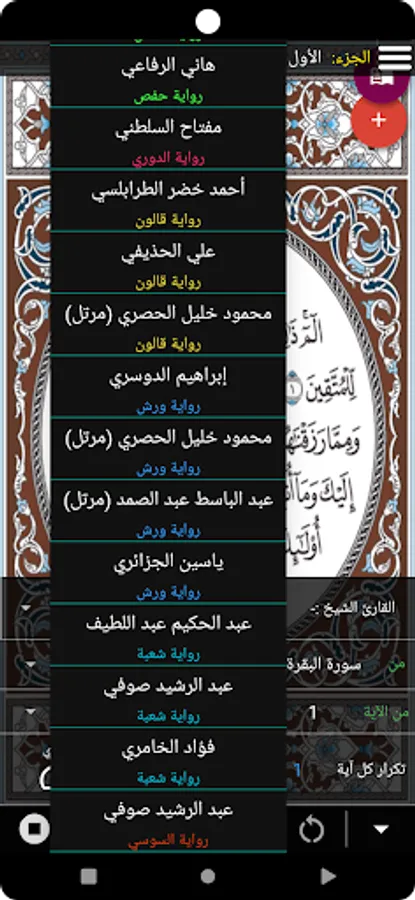 الجزء: الأول
هاني الرفاعي
رواية حفص
+
مفتاح السلطني
رواية الدوري
أحمد خضر الطرابلسي
رواية قالون
علي الحذيفي
رواية قالون
محمود خليل الحصري (مرتل)
رواية قالون
إبراهيم الدوسري
رواية ورش
محمود خليل الحصري (مرتل)
رواية ورش
عبد الباسط عبد الصمد (مرتل)
رواية ورش
ياسين الجزائري
رواية ورش
عبد الحكيم عبد اللطيف
رواية شعبة
عبد الرشيد صوفي
رواية شعبة
فؤاد الخامري
رواية شعبة
عبد الرشيد صوفي
رواية السوسي
لِّلْمُتَّقِينَ
وَمِمَّا رَزَقْنَٰهُمْ
إِلَيْكَ وَمَا
القارئ الشيخ :-
من سورة البقرة
من الآية 1
تكرار كل آية 1